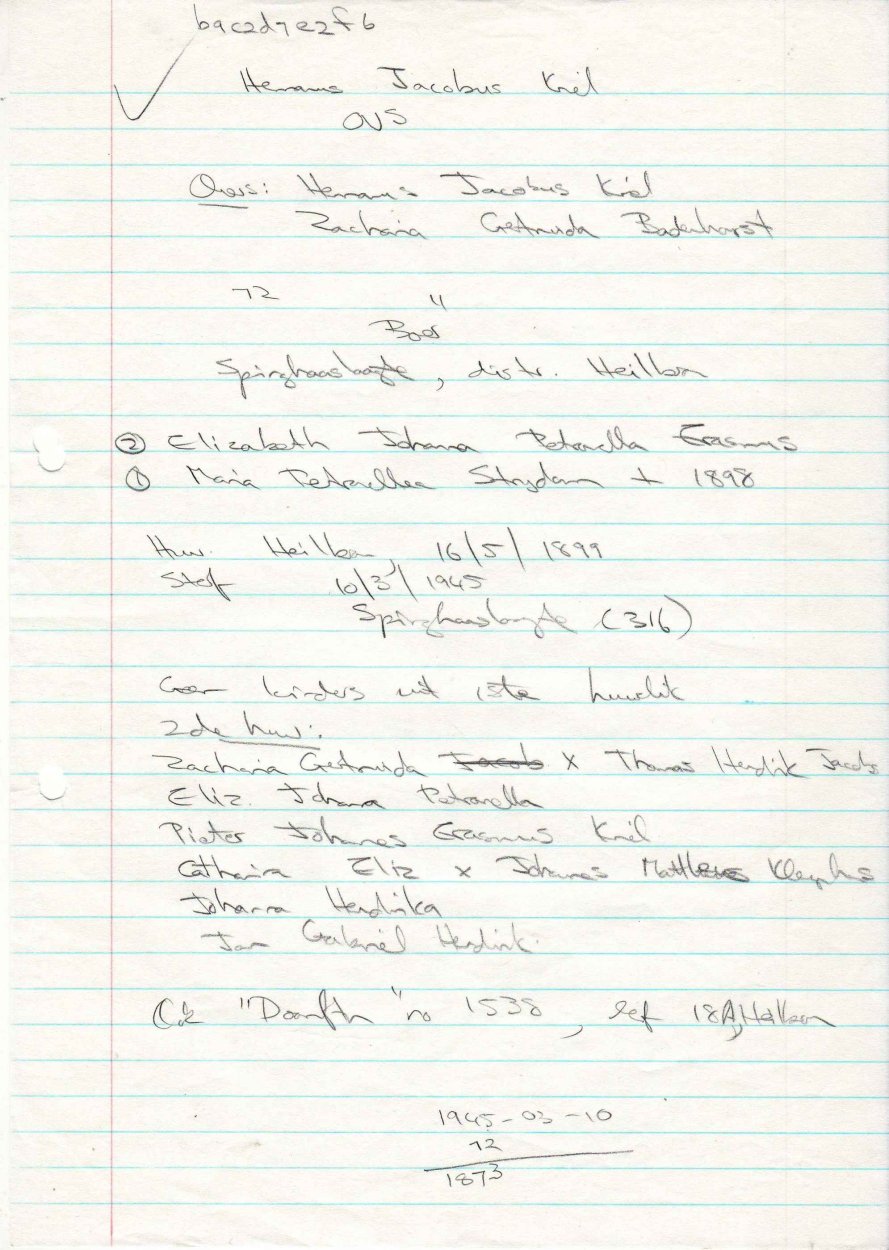 b9c2d7e2f6
Hermanus Jacobus Kriel
OVS
Ouers: Hermanus Jacobus Kriel
Zacharia Gertruida Badenhorst
72 "
Boer
, distr. Heilbron
② Elizabeth Johanna Petronella Erasmus
① Maria Petronella Strydom + 1898
Huw. Heilbron, 16/5/1899
Sterf 10/3/1945
(316)
Geen kinders uit 1ste huwelik
2de huw:
Zacharia Gertruida Jacobs x Thomas Hendrik Jacobs
Eliz. Johanna Petronella
Pieter Johannes Erasmus Kriel
Catharina Eliz x Johannes
Johanna Hendrika
Jan Gabriël Hendrik.
" no 1538, 18A, Heilbron
1945-03-10
72
1873